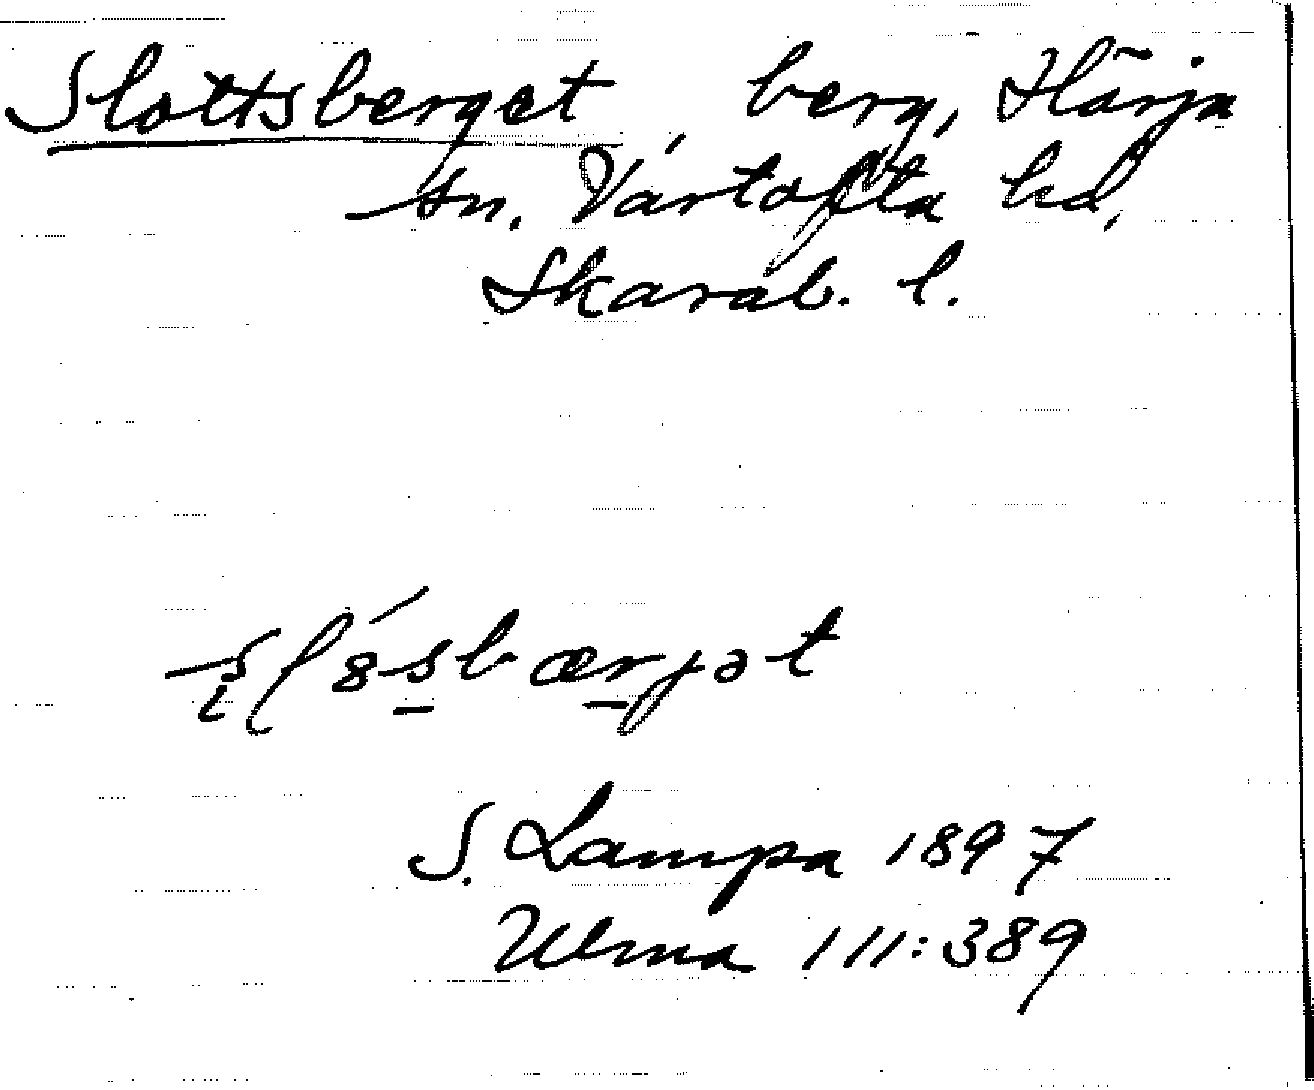 Slottsberget, berg, Härja
sn. Vartofta hd,
Skarab. l.
S. Lampa 1897
Ulma 111:389